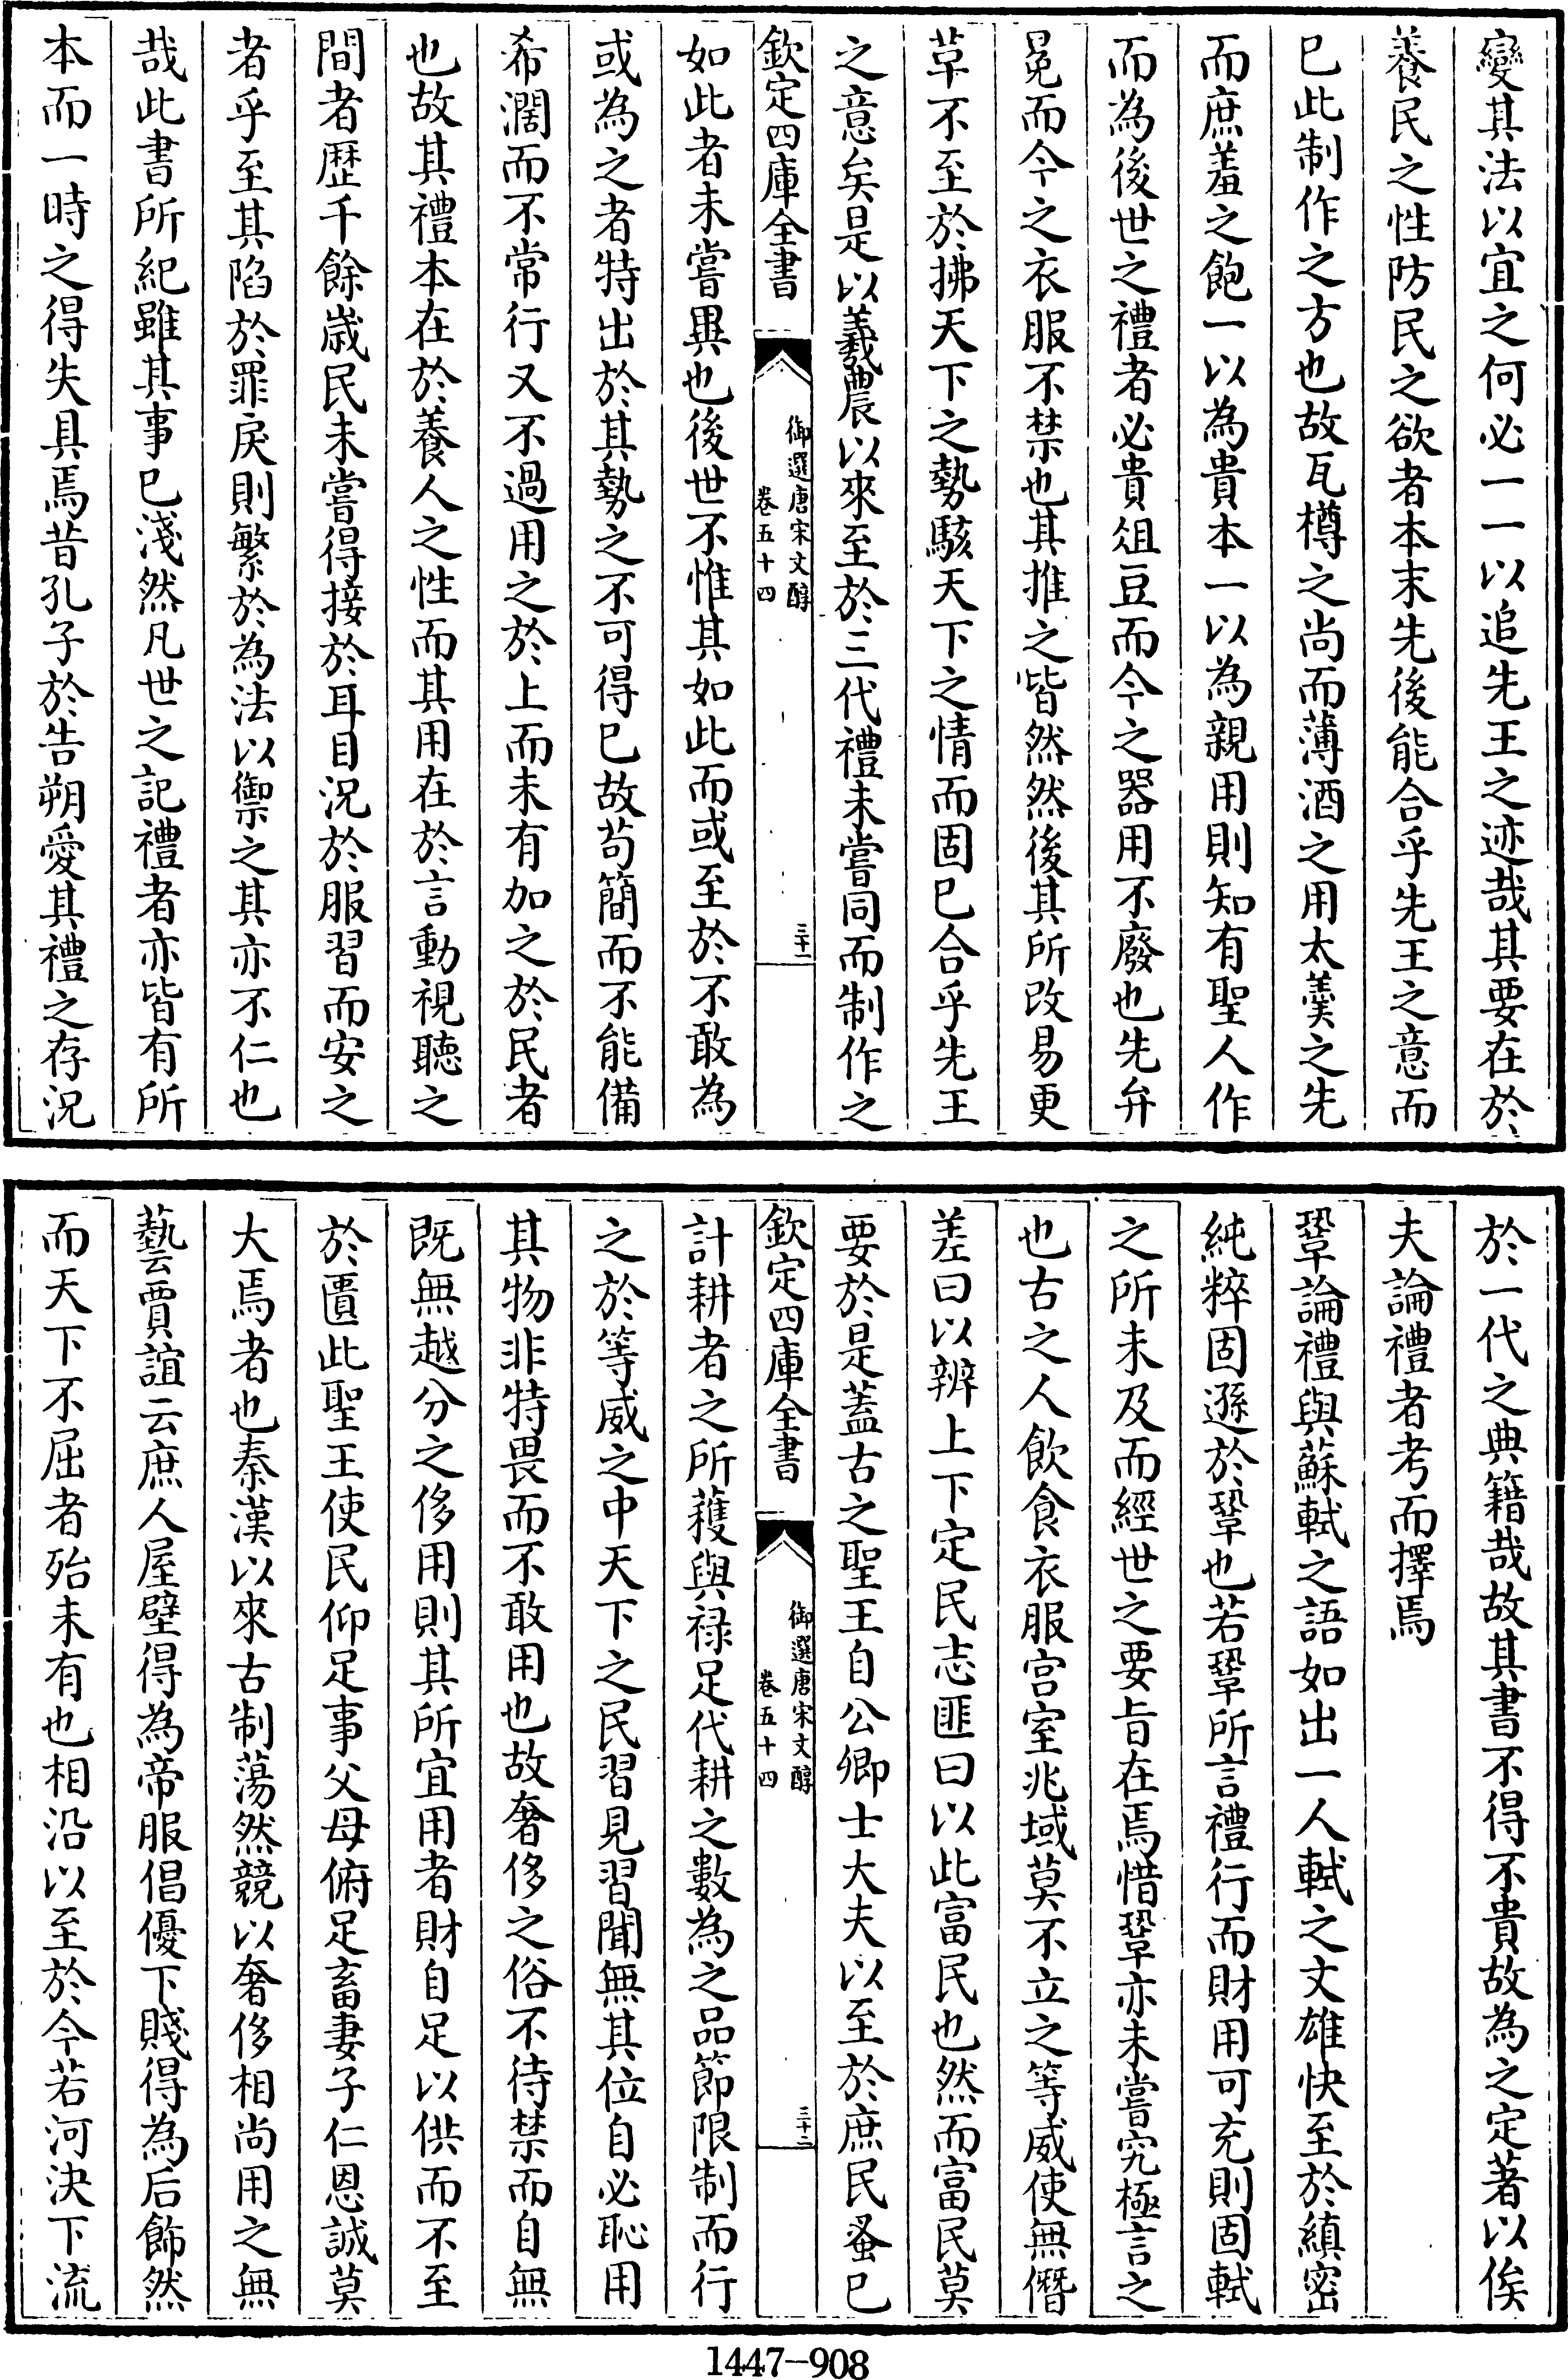 變其法以宜之何必一一以追先王之迹哉其要在於
養民之性防民之欲者本末先後能合乎先王之意而
已此制作之方也故瓦樽之尚而薄酒之用太羮之先
而庶羞之飽一以為貴本一以為親用則知有聖人作
而為後世之禮者必貴俎豆而今之器用不廢也先弁
冕而今之衣服不禁也其推之皆然然後其所改易更
草不至於拂天下之勢駭天下之情而固已合乎先王
之意矣是以羲農以來至於三代禮未嘗同而制作之
欽定四庫全書
御選唐宋文醇
卷五十四
三十一
如此者未嘗異也後世不惟其如此而或至於不敢為
或為之者特出於其勢之不可得已故苟簡而不能備
希濶而不常行又不過用之於上而未有加之於民者
也故其禮本在於養人之性而其用在於言動視聽之
間者歴千餘嵗民未嘗得接於耳目況於服習而安之
者乎至其陷於罪戾則繁於為法以禦之其亦不仁也
哉此書所紀雖其事已淺然凡世之記禮者亦皆有所
本而一時之得失具焉昔孔子於告朔愛其禮之存況
於一代之典籍哉故其書不得不貴故為之定著以俟
夫論禮者考而擇焉
鞏論禮與蘇軾之語如出一人軾之文雄快至於縝密
純粹固遜於鞏也若鞏所言禮行而財用可充則固軾
之所未及而經世之要旨在焉惜鞏亦未嘗究極言之
也古之人飲食衣服宫室兆域莫不立之等威使無僭
差曰以辨上下定民志匪曰以此富民也然而富民莫
要於是蓋古之聖王自公卿士大夫以至於庶民蚤已
欽定四庫全書
御選唐宋文醇
卷五十四
三十二
計耕者之所蓻與禄足代耕之數為之品節限制而行
之於等威之中天下之民習見習聞無其位自必恥用
其物非特畏而不敢用也故奢侈之俗不待禁而自無
既無越分之侈用則其所宜用者財自足以供而不至
於匱此聖王使民仰足事父母俯足畜妻子仁恩誠莫
大焉者也秦漢以來古制蕩然競以奢侈相尚用之無
藝賈誼云庶人屋壁得為帝服倡優下賤得為后飾然
而天下不屈者殆未有也相沿以至於今若河決下流
1447-908